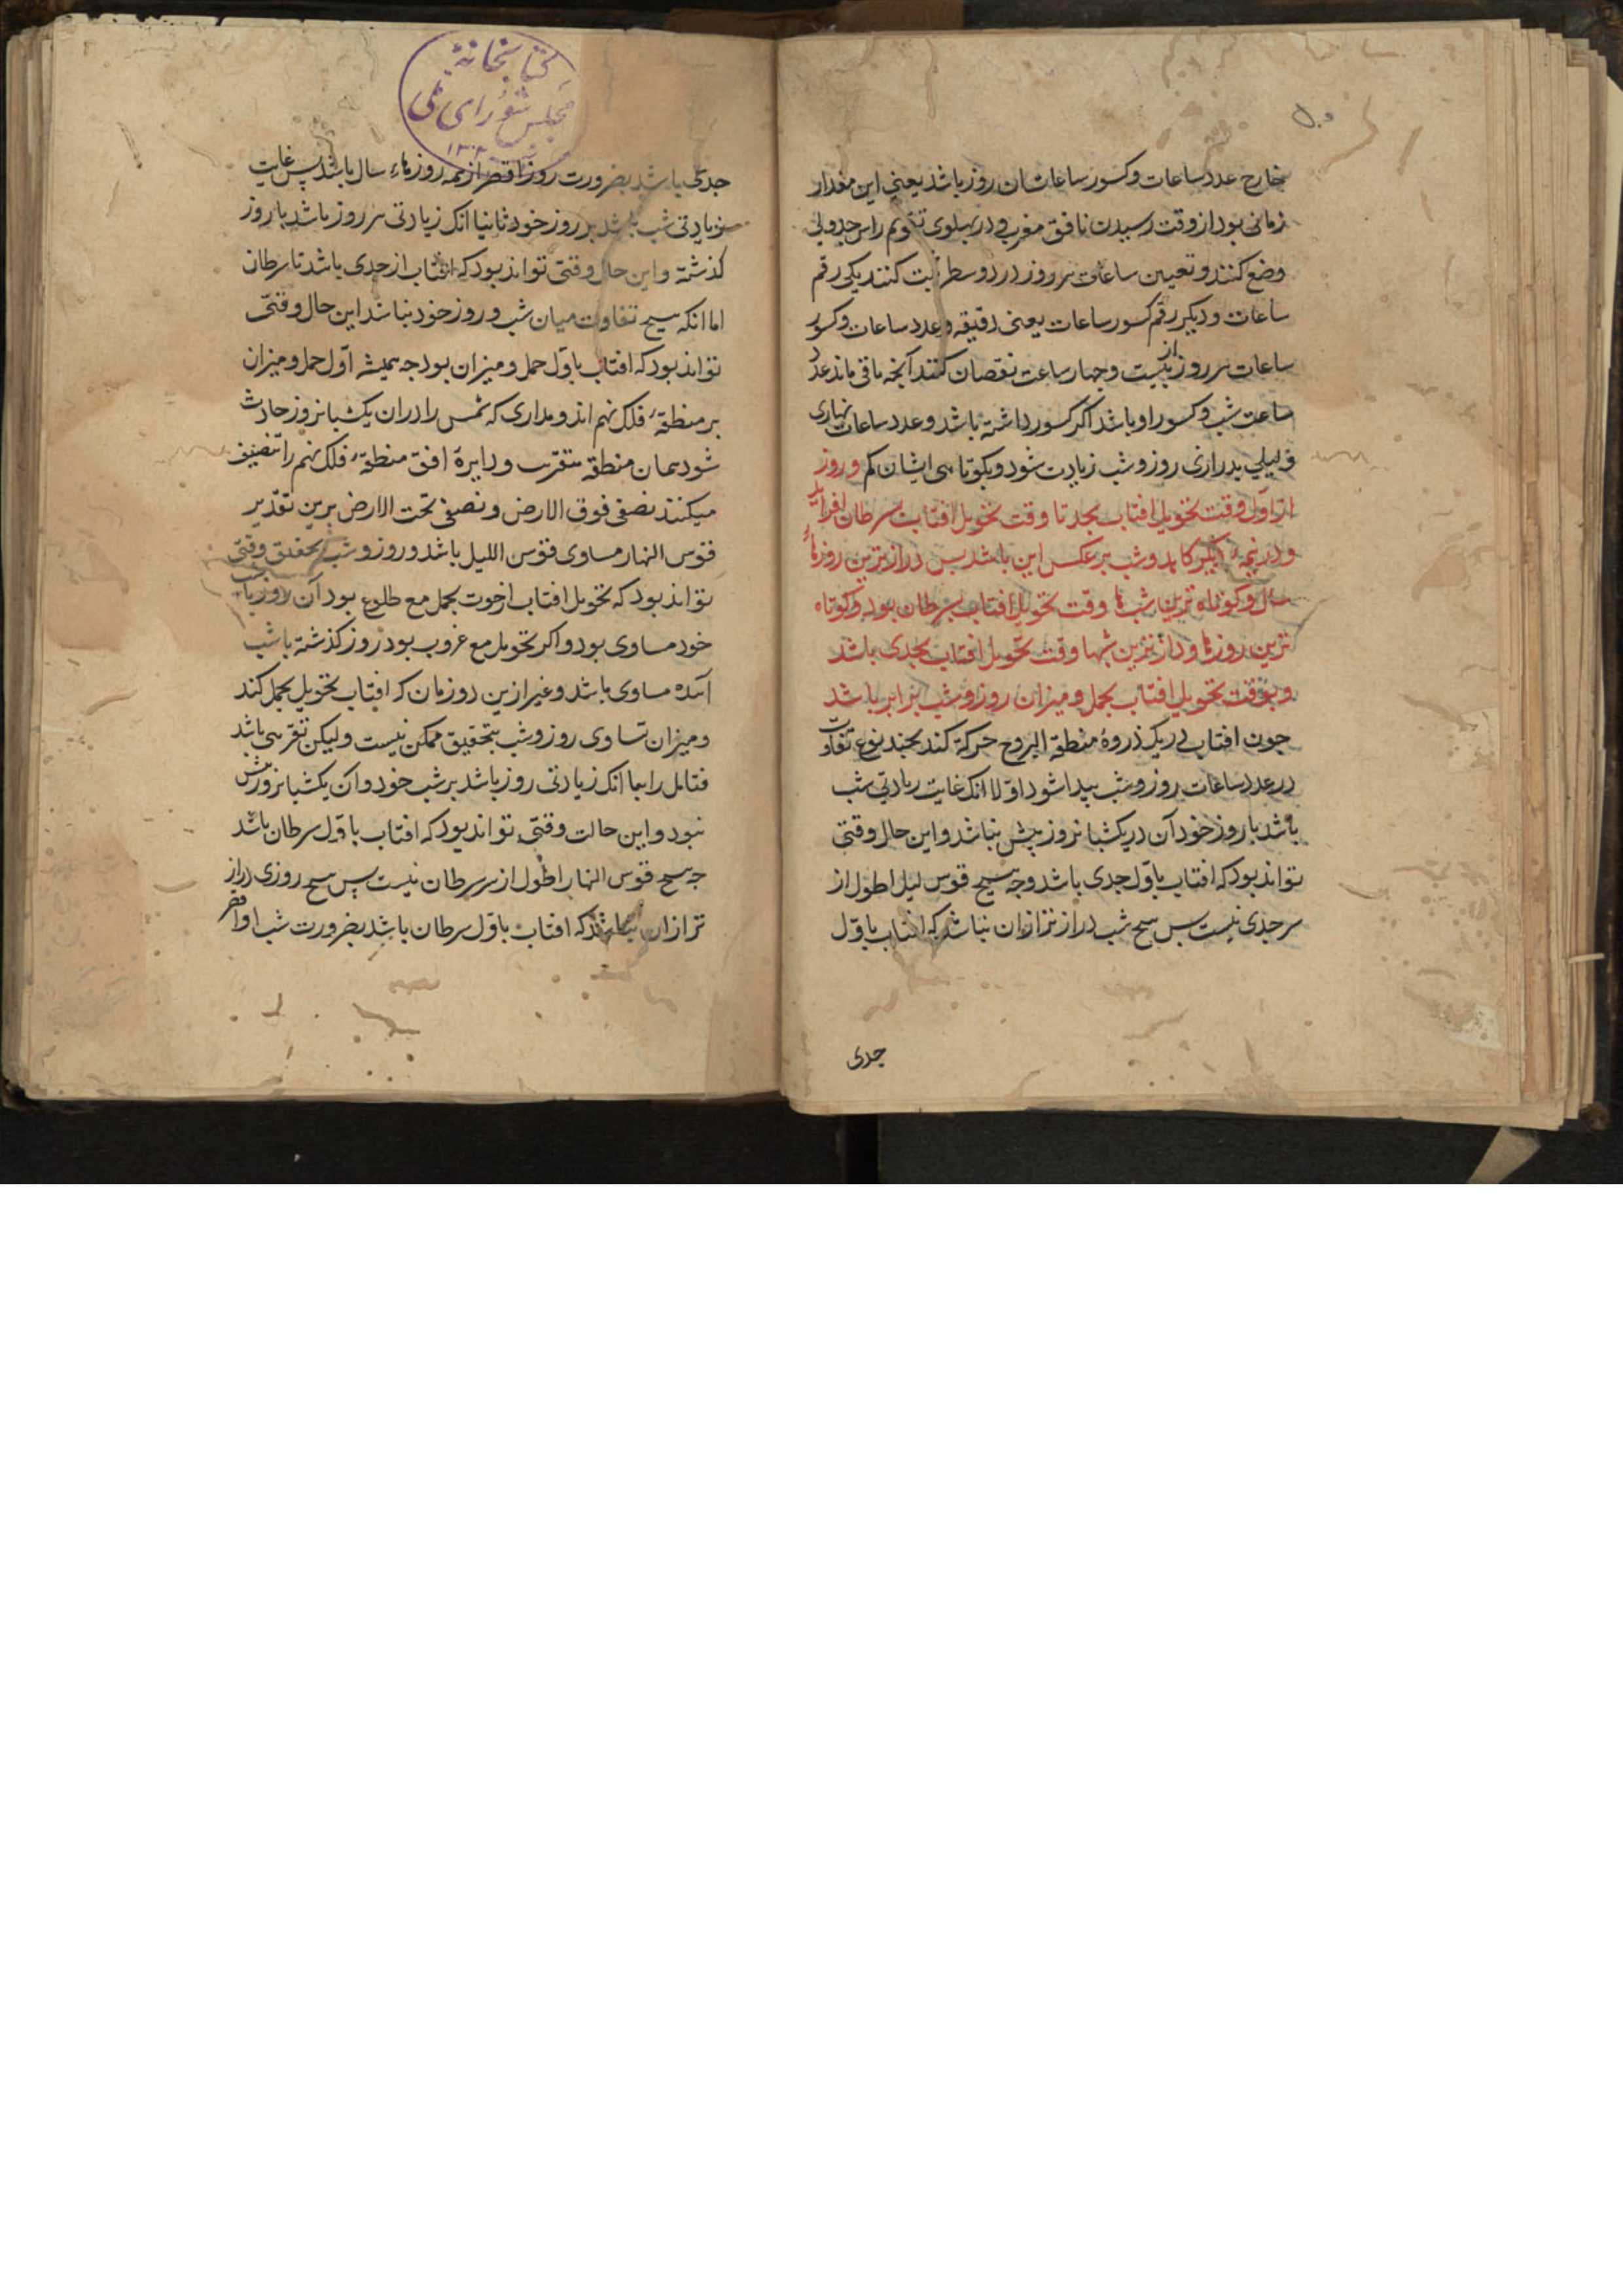 خارج عدد ساعات و کسور ساعات ان روز باشد یعنی این مقدار
زمانی بود از وقت رسیدن تا افق مغرب و در پهلوی تقویم راس جدولی
وضع کنند و تعیین ساعات هر روز در دو سطر ثبت کنند یکی رقم
ساعات و دیگر رقم کسور ساعات یعنی دقیقه و عدد ساعات و کسور
ساعات هر روز از بیست و چهار ساعت نقصان کنند آنچه باقی ماند عدد
ساعت شب و کسور او باشد اکر کسور داشته باشد و عدد ساعات نهاری
و لیلی بدرازی روز و شب زیادت شود و بکوتاهی ایشان کم و روز
از اول وقت تحویل افتاب بجدی تا وقت تحویل افتاب بسرطان افزاید
و در نیمهٔ دیگر کاهد و شب برعکس این باشد بس درازترین روزهاء
سال و کوتاه ترین شبها وقت تحویل افتاب بسرطان بود و کوتاه
ترین روزها و درازترین شبها وقت تحویل افتاب بجدی باشد
و بوقت تحویل افتاب بحمل و میزان روز و شب برابر باشد
جون افتاب در یک دوره منطقة البروج حرکة کند بجند نوع تفاوت
در عدد ساعات روز و شب پیدا شود اولا انک غایت زیادتی شب
باشد با روز خود آن در یکشبانروز پیش نباشد و این حال وقتی
تواند بود که افتاب باول جدی باشد وجه هیج قوس لیل اطول از
سر جدی نیست بس هیج شب درازتر ازان نباشد که افتاب باول
جدی
کتابخانهٔ
مجلس شورای ملی
جدی باشد بضرورت روز اقصر از همه روزهاء سال باشد پس غایت
زیادتی شب باشد بر روز خود ثانیا انک زیادتی هر روز باشد با روز
کذشته و این حال وقتی تواند بود که افتاب از جدی باشد تا سرطان
اما انکه هیج تفاوت میان شب و روز خود نباشد این حال وقتی
تواند بود که افتاب باول حمل و میزان بود جه همیشه اول حمل و میزان
بر منطقهٔ فلک نهم اند و مداری که شمس را دران یکشبانروز حادث
شود همان منطقه بتقریب و دایرهٔ افق منطقهٔ فلک نهم را تنصیف
میکنند نصفی فوق الارض و نصفی تحت الارض برین تقدیر
قوس النهار مساوی قوس اللیل باشد و روز و شب بتحقیق وقتی
تواند بود که تحویل افتاب از حوت بحمل مع طلوع بود آن روز با شب
خود مساوی بود و اکر تحویل مع غروب بود روز کذشته با شب
آینده مساوی باشد و غیر ازین دو زمان که افتاب تحویل بحمل کند
و میزان تساوی روز و شب بتحقیق ممکن نیست و لیکن تقریبی باشد
فتامل رابعا انک زیادتی روز باشد بر شب خود و آن یکشبانروز بیش
نبود و این حالت وقتی تواند بود که افتاب باول سرطان باشد
جه هیج قوس النهار اطول از سر سرطان نیست پس هیج روزی دراز
تر ازان نباشد که افتاب باول سرطان باشد بضرورت شب او اقصر